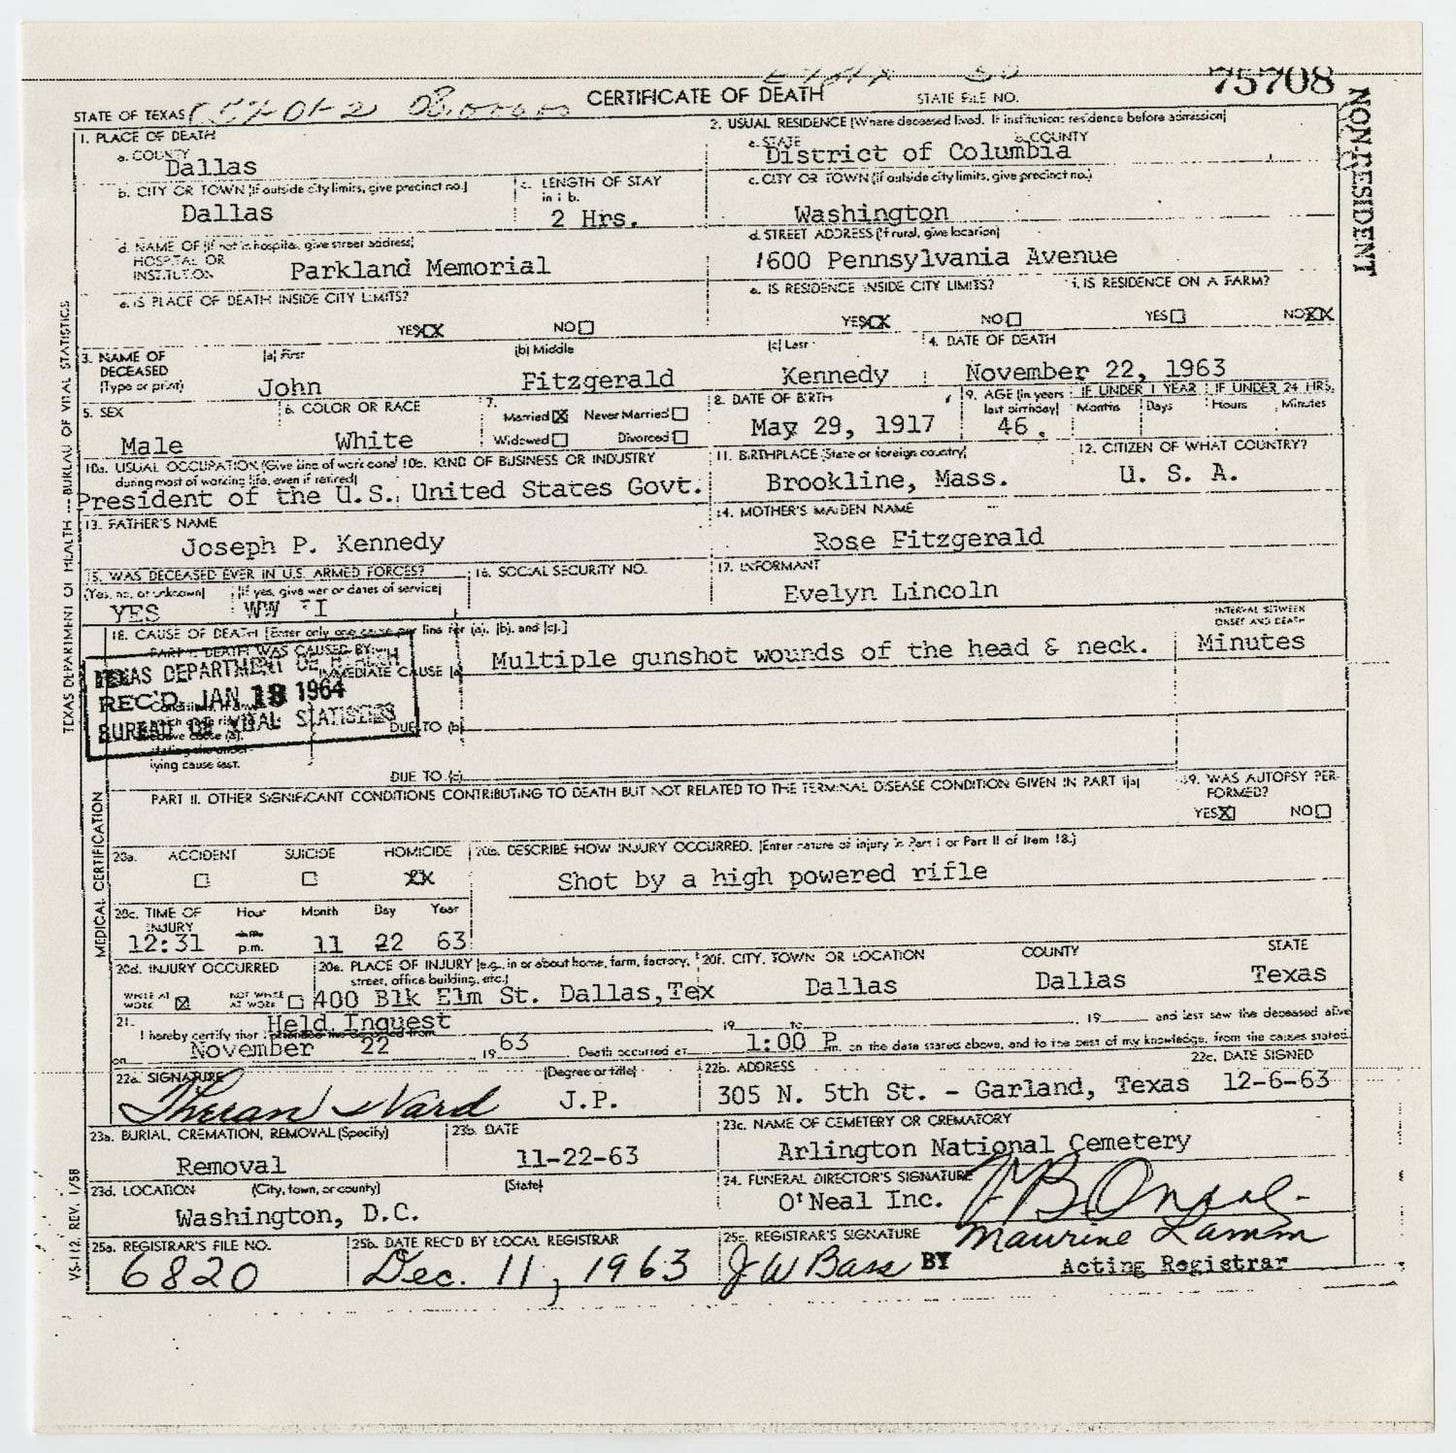 75708
CERTIFICATE OF DEATH
STATE OF TEXAS
STATE FILE NO.
NON-RESIDENT
1. PLACE OF DEATH
a. COUNTY
Dallas
2. USUAL RESIDENCE (Where deceased lived. If institution: residence before admission)
a. STATE
b. COUNTY
District of Columbia
b. CITY OR TOWN (If outside city limits, give precinct no.)
Dallas
c. LENGTH OF STAY in 1 b.
2 Hrs.
c. CITY OR TOWN (If outside city limits, give precinct no.)
Washington
d. NAME OF (If not in hospital, give street address)
HOSPITAL OR
INSTITUTION
Parkland Memorial
d. STREET ADDRESS (If rural, give location)
1600 Pennsylvania Avenue
e. IS PLACE OF DEATH INSIDE CITY LIMITS?
YES XX NO
e. IS RESIDENCE INSIDE CITY LIMITS?
YES XX NO
f. IS RESIDENCE ON A FARM?
YES NO XX
3. NAME OF DECEASED (Type or print)
(a) First
John
(b) Middle
Fitzgerald
(c) Last
Kennedy
4. DATE OF DEATH
November 22, 1963
5. SEX
Male
6. COLOR OR RACE
White
7.
Married X Never Married
Widowed Divorced
8. DATE OF BIRTH
May 29, 1917
9. AGE (In years last birthday)
46
IF UNDER 1 YEAR
Months Days
IF UNDER 24 HRS.
Hours Minutes
10a. USUAL OCCUPATION (Give kind of work done during most of working life, even if retired)
President of the U.S.
10b. KIND OF BUSINESS OR INDUSTRY
United States Govt.
11. BIRTHPLACE (State or foreign country)
Brookline, Mass.
12. CITIZEN OF WHAT COUNTRY?
U. S. A.
13. FATHER'S NAME
Joseph P. Kennedy
14. MOTHER'S MAIDEN NAME
Rose Fitzgerald
15. WAS DECEASED EVER IN U.S. ARMED FORCES?
(Yes, no, or unknown) (If yes, give war or dates of service)
YES WW II
16. SOCIAL SECURITY NO.
17. INFORMANT
Evelyn Lincoln
18. CAUSE OF DEATH [Enter only one cause per line for (a), (b), and (c).]
INTERVAL BETWEEN ONSET AND DEATH
PART I. DEATH WAS CAUSED BY:
IMMEDIATE CAUSE (a)
Multiple gunshot wounds of the head & neck.
Minutes
TEXAS DEPARTMENT OF HEALTH
REC'D JAN 18 1964
BUREAU OF VITAL STATISTICS
DUE TO (b)
lying cause last.
DUE TO (c)
PART II. OTHER SIGNIFICANT CONDITIONS CONTRIBUTING TO DEATH BUT NOT RELATED TO THE TERMINAL DISEASE CONDITION GIVEN IN PART I(a)
19. WAS AUTOPSY PERFORMED?
YES X NO
20a. ACCIDENT SUICIDE HOMICIDE
XX
20b. DESCRIBE HOW INJURY OCCURRED. (Enter nature of injury in Part I or Part II of Item 18.)
Shot by a high powered rifle
20c. TIME OF INJURY Hour Month Day Year
12:31 p.m. 11 22 63
20d. INJURY OCCURRED
WHILE AT WORK X NOT WHILE AT WORK
20e. PLACE OF INJURY (e.g., in or about home, farm, factory, street, office building, etc.)
400 Blk Elm St. Dallas, Tex
20f. CITY, TOWN OR LOCATION
Dallas
COUNTY
Dallas
STATE
Texas
21.
Held Inquest
I hereby certify that I attended the deceased from 19 to 19 and last saw the deceased alive
on November 22 19 63 Death occurred at 1:00 P m. on the date stated above, and to the best of my knowledge, from the causes stated.
22a. SIGNATURE
Theran Ward
(Degree or title)
J.P.
22b. ADDRESS
305 N. 5th St. - Garland, Texas
22c. DATE SIGNED
12-6-63
23a. BURIAL, CREMATION, REMOVAL (Specify)
Removal
23b. DATE
11-22-63
23c. NAME OF CEMETERY OR CREMATORY
Arlington National Cemetery
23d. LOCATION (City, town, or county) (State)
Washington, D.C.
24. FUNERAL DIRECTOR'S SIGNATURE
O'Neal Inc.
25a. REGISTRAR'S FILE NO.
6820
25b. DATE REC'D BY LOCAL REGISTRAR
Dec. 11, 1963
25c. REGISTRAR'S SIGNATURE
J W Bass BY Maurine Lamm
Acting Registrar
TEXAS DEPARTMENT OF HEALTH — BUREAU OF VITAL STATISTICS
MEDICAL CERTIFICATION
VS-112, REV. 1/58